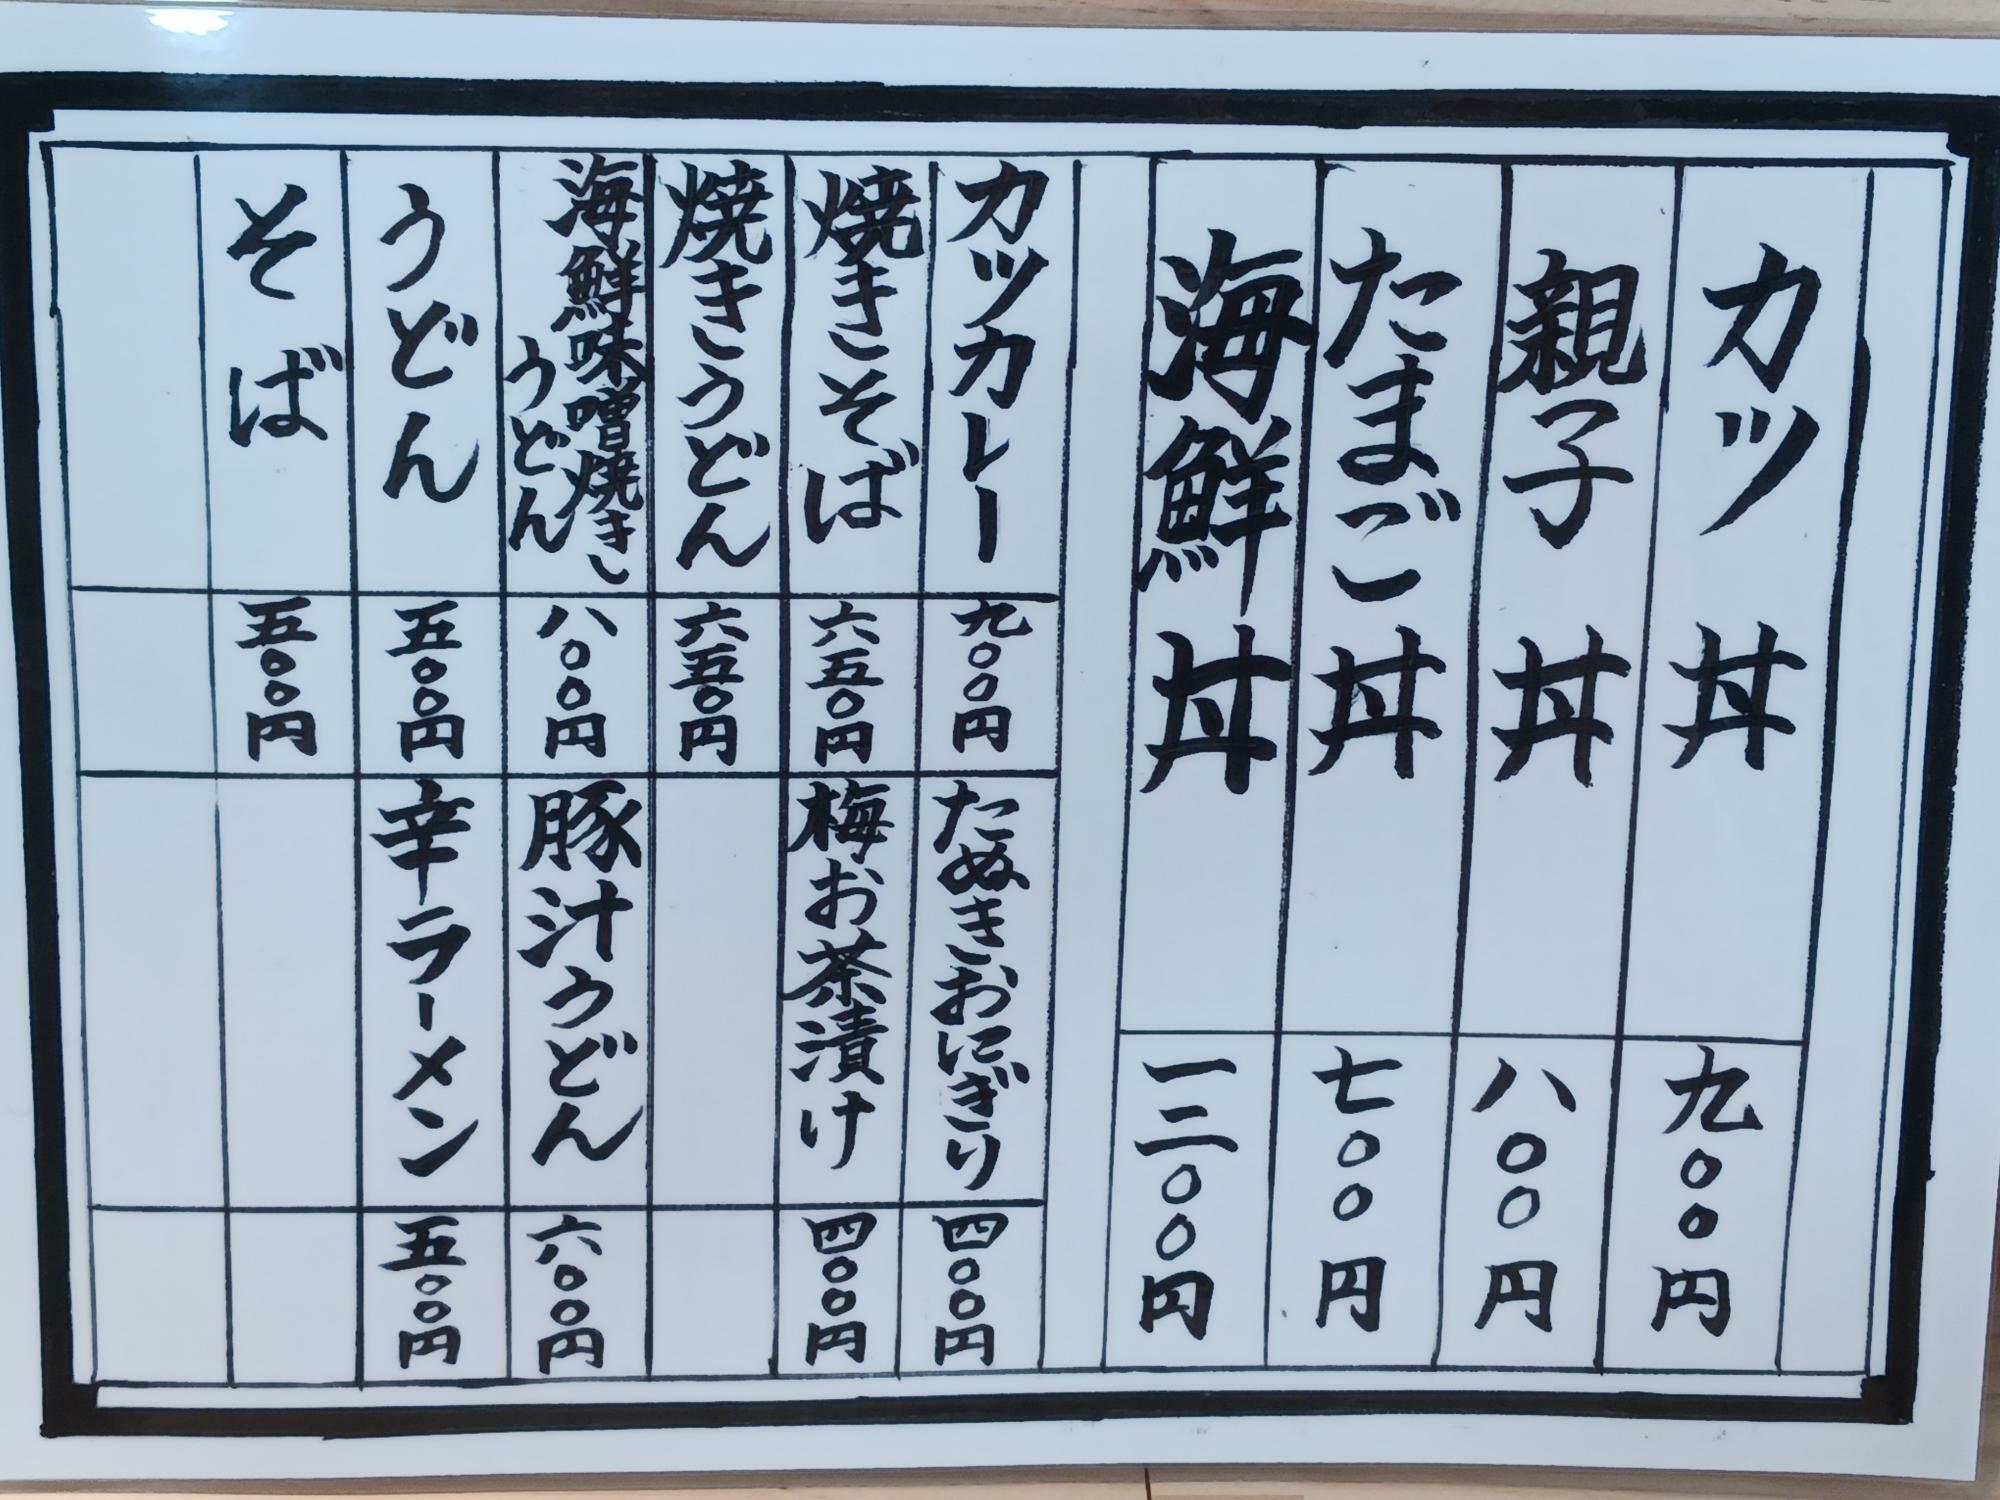 カツ丼 九〇〇円
親子丼 八〇〇円
たまご丼 七〇〇円
海鮮丼 一二〇〇円
カツカレー 九〇〇円
焼きそば 六五〇円
焼きうどん 六五〇円
海鮮味噌焼き
うどん 八〇〇円
うどん 五〇〇円
そば 五〇〇円
たぬきおにぎり 四〇〇円
梅お茶漬け 四〇〇円
豚汁うどん 六〇〇円
辛ラーメン 五〇〇円